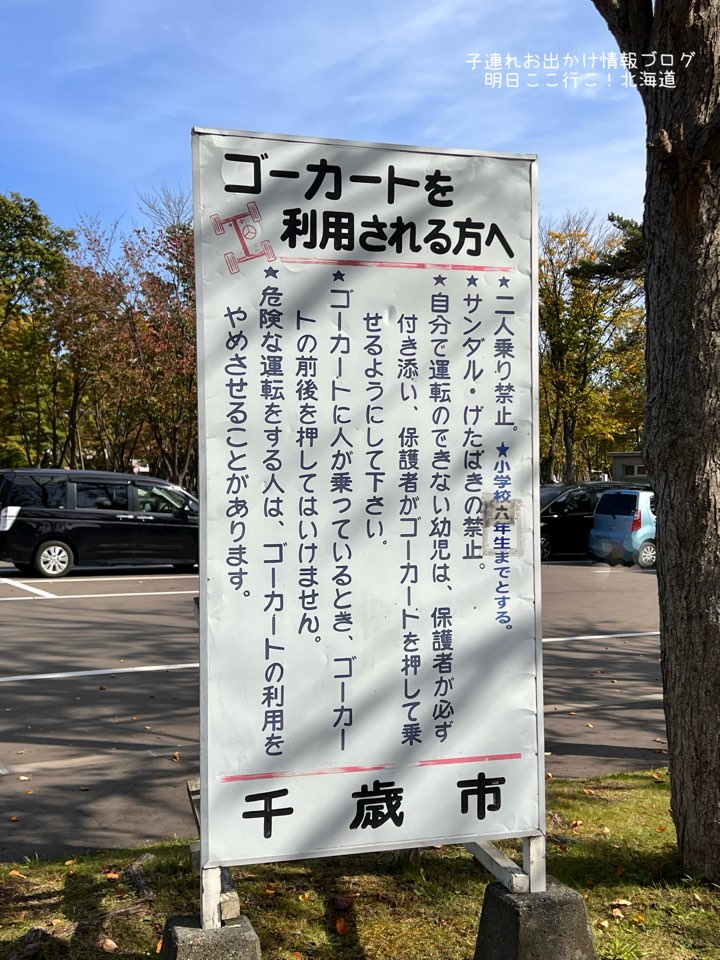 子連れお出かけ情報ブログ
明日ここ行こ!北海道
ゴーカートを
利用される方へ
★二人乗り禁止。 ★小学校六年生までとする。
★サンダル・げたばきの禁止。
★自分で運転のできない幼児は、保護者が必ず
付き添い、保護者がゴーカートを押して乗
せるようにして下さい。
★ゴーカートに人が乗っているとき、ゴーカー
トの前後を押してはいけません。
★危険な運転をする人は、ゴーカートの利用を
やめさせることがあります。
千歳市